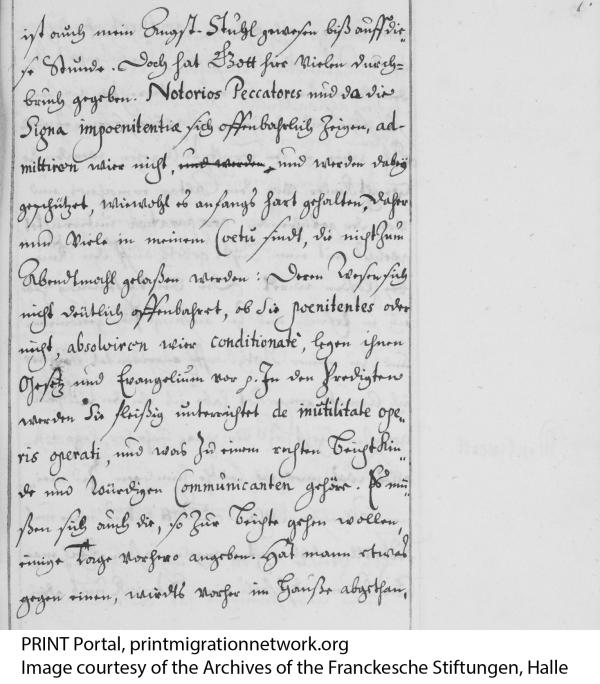 ist auch mein Angst-Stuhl gewesen biß auff die-
se Stunde. Doch hat Gott hier Vielen durch-
bruch gegeben. Notorios Peccatores und da die
Signa impoenitentiæ sich offenbahrlich zeigen, ad-
mittiren wier nicht, und werden, und werden dabey
geschützet, wiewohl es anfangs hart gehalten, daher
nun Viele in meinem Coetu sindt, die nicht zum
Abendtmahl gelaßen werden: Deren Wesen sich
nicht deutlich offenbahret, ob Sie poenitentes oder
nicht, absolviren wier conditionatè, legen ihnen
Gesetz und Evangelium vor p. In den Predigten
werden Sie fleißig unterrichtet de inutilitate ope-
ris operati, und was zu einem rechten Beicht Kin-
de und Würdigen Communicanten gehöre. Es mü-
ßen sich auch die, so zur Beichte gehen wollen,
einige Tage vorhero angeben. Hat mann etwas
gegen einen, wirdts vorher im Hauße abgethan,
PRINT Portal, printmigrationnetwork.org
Image courtesy of the Archives of the Franckesche Stiftungen, Halle